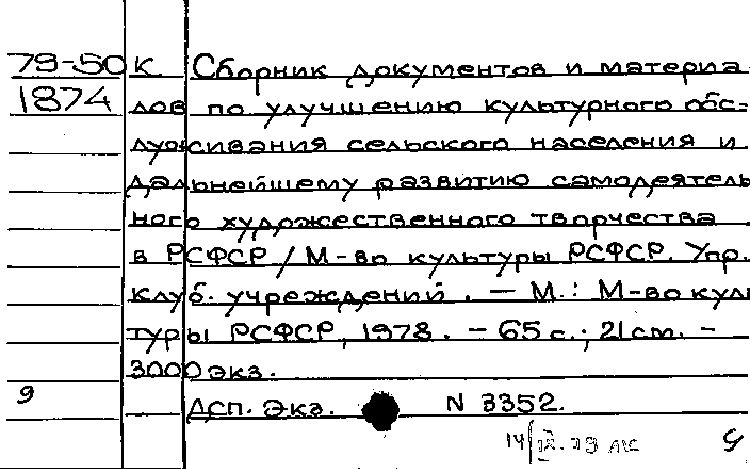 79-50 к Сборник документов и материа
1874 лов по улучшению культурного обс-
луживания сельского населения и
дальнейшему развитию самодеятель
ного художественного творчества
в РСФСР / М-во культуры РСФСР. Упр.
клуб. учреждений. – М.: М-во куль
туры РСФСР, 1978. – 65 с.; 21 cm. –
3000 экз.
9 Дсп. Экз. N 3352.